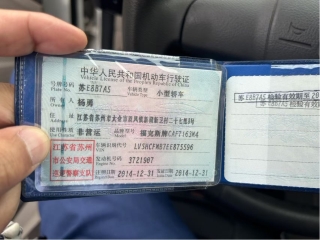 中华人民共和国机动车行驶证
Vehicle License of the People's Republic of China
号牌号码 苏E887A5 车辆类型 小型轿车
Plate No. Vehicle Type
所有人 杨勇
住址 江苏省苏州市太仓市
使用性质 非营运 品牌型号 福克斯牌CAF7163M4
江苏省苏州
市公安局交通
巡逻警察支队
车辆识别代号 LVSHCFMB7EE873596
发动机号码 3721907
注册日期 2014-12-31 发证日期 2014-12-31
苏E887A5 检验有效期至20